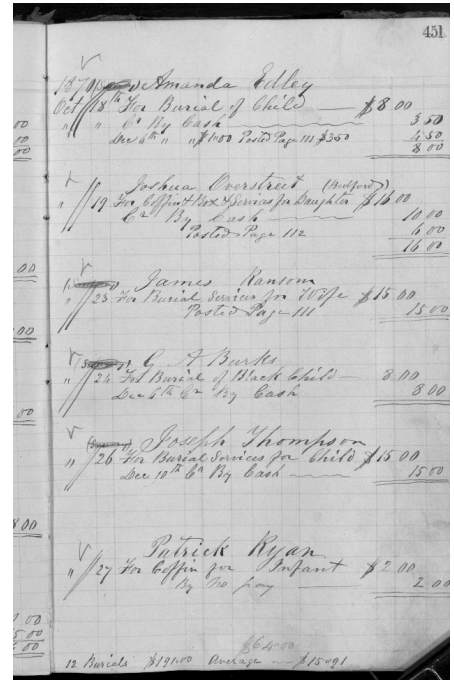 451
1870 Amanda Edley
Oct 18th For Burial of Child — $8 00
" " Cr By Cash 3 50
Dec 6th " " $1.00 Posted Page 111 $3.50 4 50
8 00
Joshua Overstreet (Bedford)
" 19 For Coffin & Box & Services for Daughter $16 00
Cr By Cash 10 00
Posted Page 112 6 00
16 00
James Ransom
" 23 For Burial Services for Wife $15 00
Posted Page 111 15 00
G A Burks
" 24 For Burial of Black Child — 8 00
Dec 6th Cr By Cash 8 00
Joseph Thompson
" 26 For Burial Services for Child $15 00
Dec 10th Cr By Cash 15 00
Patrick Ryan
" 27 For Coffin for Infant $2 00
By No pay 2 00
$64.00
12 Burials $191.00 Average — $15.91